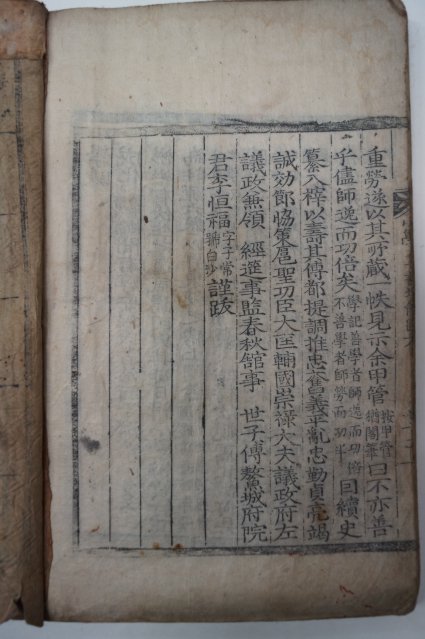 重勞遂以其所藏一帙見示余甲管按甲管猶閣筆曰不亦善
乎儘師逸而功倍矣學記善學者師逸而功倍不善學者師勞而功半囙續史
纂入梓以壽其傳都提調推忠奮義平亂忠勤貞亮竭
誠効節協策扈聖功臣大匡輔國崇祿大夫議政府左
議政兼領 經筵事監春秋館事 世子傅鰲城府院
君李恒福字子常號白沙謹跋